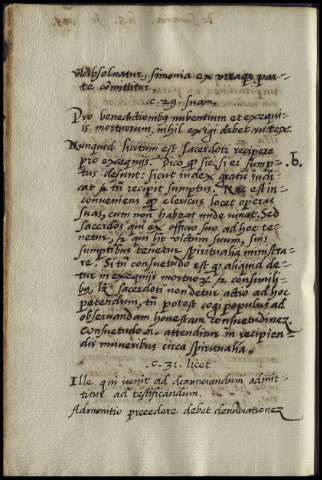 absolvatur, simonia ex utraq; par-
te comittitur.
.c. 29. suam.
Pro benedictionibꝰ nubentium et exequi-
is mortuorum, nihil exigi debet ...
Nunquid licitum est sacerdoti recipere
pro exequijs. Dico ꝙ sic, si ei sump-
tus desunt: sicut iudex gratis iudi-
cat & tñ recipit sumptus. Nec est in-
conveniens ꝙ clericus locet operas
suas, cum non habeat unde vivat. Sed
sacerdos qui ex officio suo ad hoc te-
netur, & qui hĩt victum suum, suis
sumptibus tenetur spiritualia ministra-
re. Si tñ consuetudo est ꝙ aliquid de-
tur in exequijs mortuoꝝ & consimili-
bꝰ, lꝫ sacerdoti non detur actio ad hoc
petendum, tñ potest cogi populus ad
observandam honestam consuetudinez.
Consuetudo .n. attenditur in recipien-
dis muneribus circa spiritualia.
.c. 31. licet
Ille qui venit ad denunciandum admit-
titur ad testificandum.
Admonitio precedere debet denuciationez